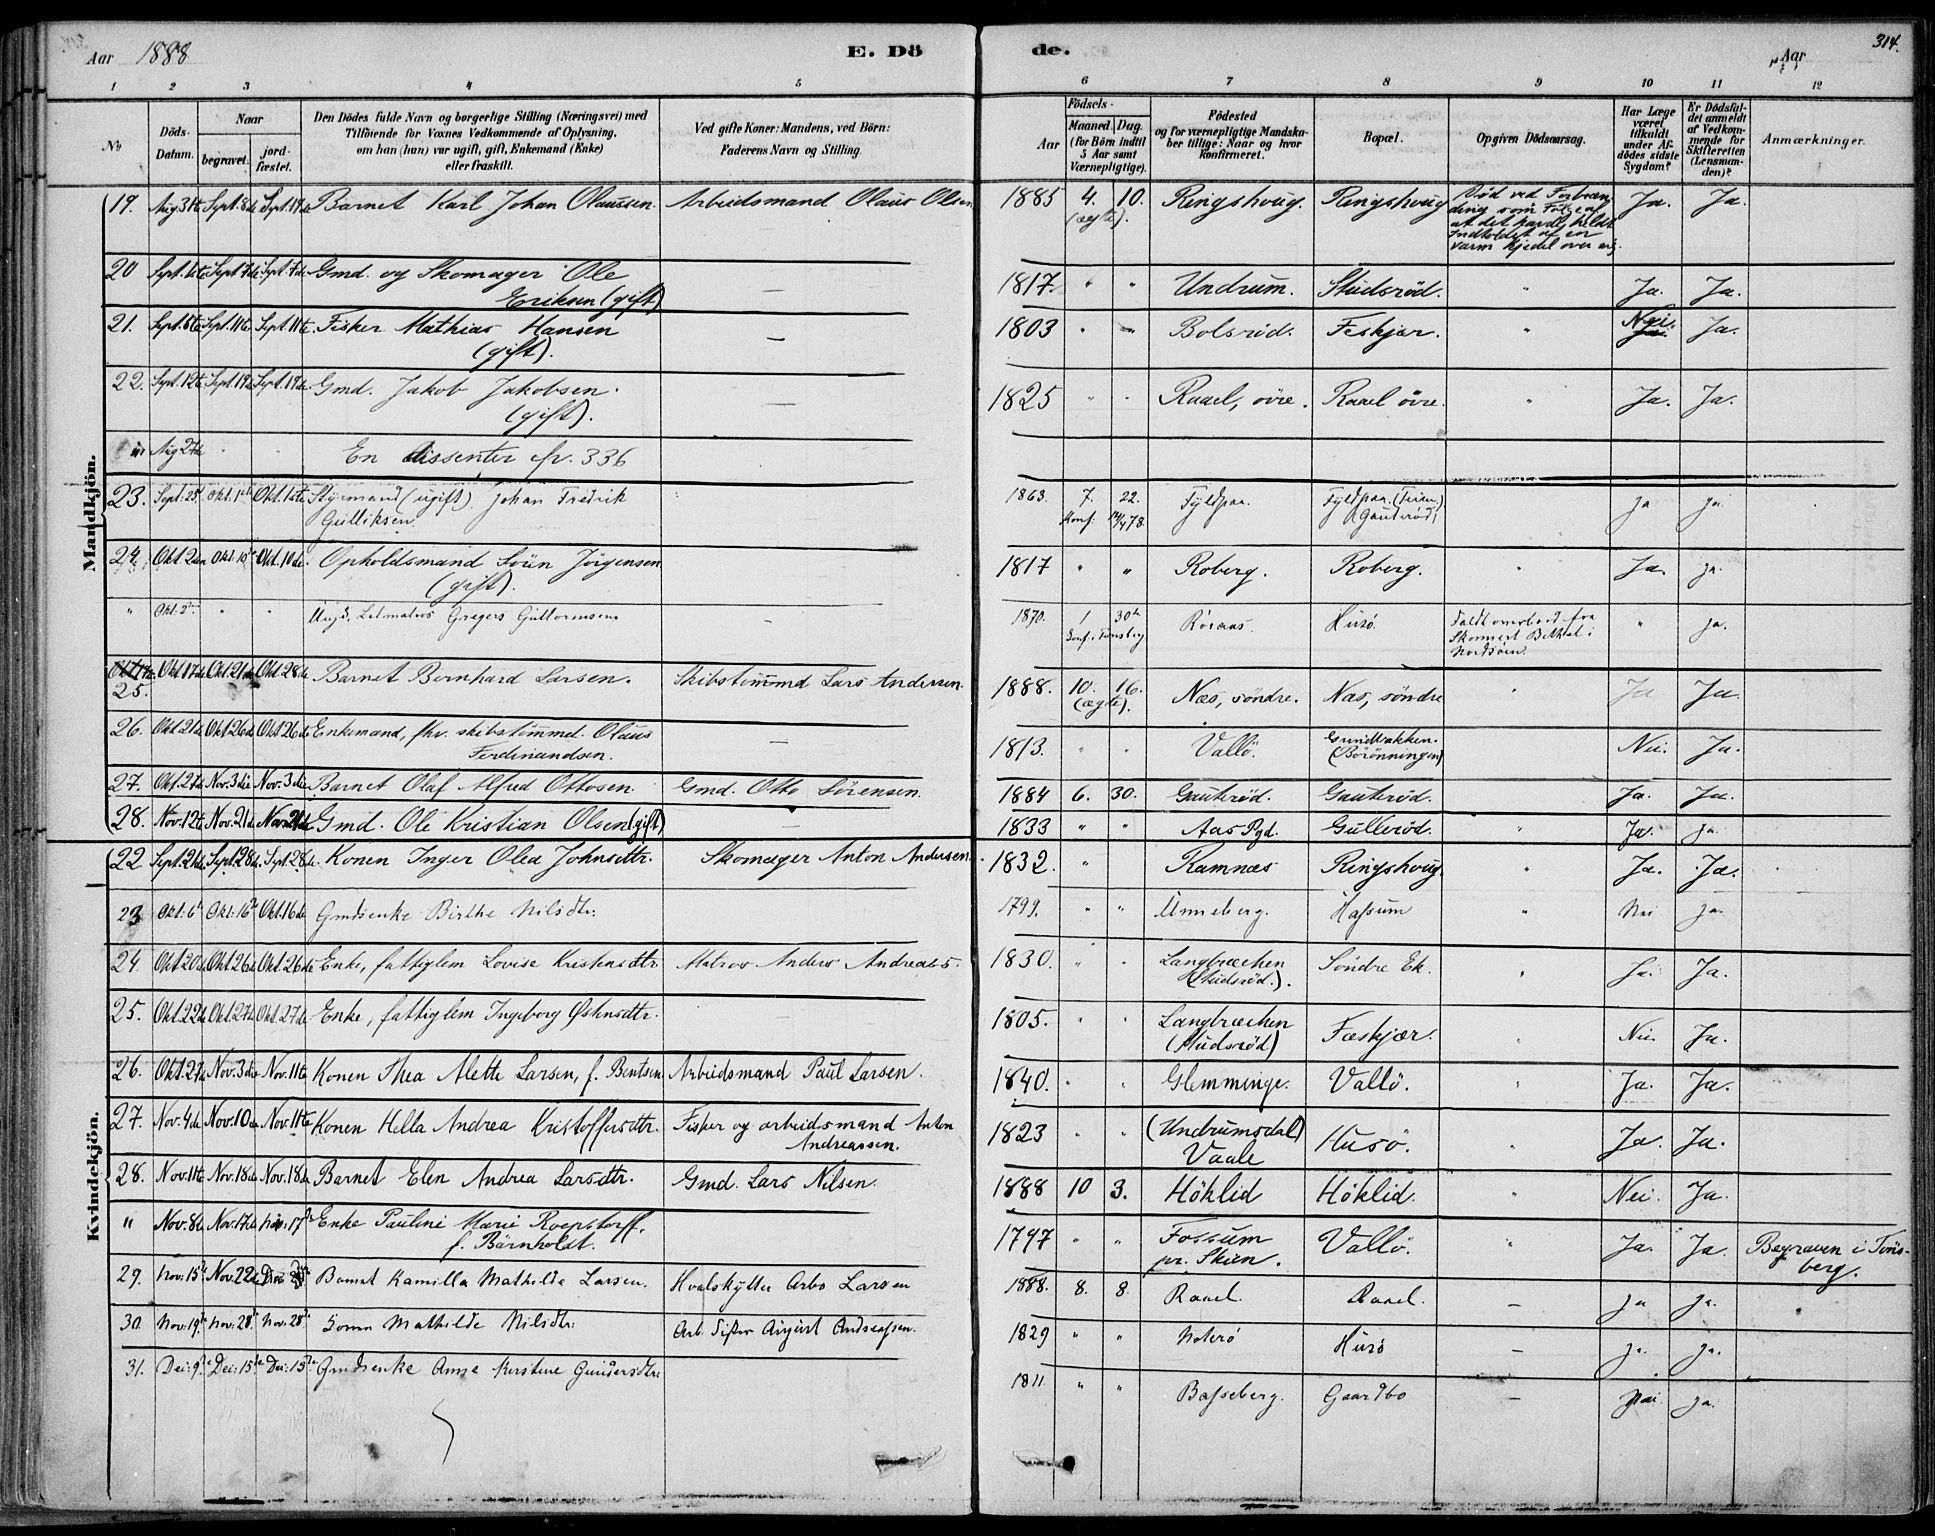 Aar 1888 E. Dö de. Aar 314.
1 2 3 4 5 6 7 8 9 10 11 12
No. Döds-Datum. Naar begravet. jord-fæstet. Den Dödes fulde Navn og borgerlige Stilling (Næringsvei) med Tilföiende for Voxnes Vedkommende af Oplysning, om han (hun) var ugift, gift, Enkemand (Enke) eller fraskilt. Ved gifte Koner: Mandens, ved Börn: Faderens Navn og Stilling. Födsels- Aar Maaned. Dag. (for Börn indtil 5 Aar samt Værnepligtige). Födested og for værnepligtige Mandska-ber tillige: Naar og hvor konfirmeret. Bopæl. Opgiven Dödsaarsag. Har Læge været tilkaldt under Af-dödes sidste Sygdom? Er Dödsfal-det anmeldt af Vedkom-mende for Skifteretten (Lensman-den)? Anmærkninger.
Mandkjön.
19. Aug 31te Sept. 8de Sept. 19de Barnet Karl Johan Olaussen. Arbeidsmand Olaus Olsen 1885 4. 10. (ægte). Ringshoug. Ringshoug Död ved Forbræn-ding som Fölge af at det havde heldt Indholdet af en varm Kjedel over sig. Ja. Ja.
20 Sept. 1ste Sept 7de Sept. 7de Gmd. og Skomager Ole Eriksen (gift) — 1817. " " Undrum. Studsröd. " Ja. Ja.
21. Sept. 5te Sept. 11te Sept. 11te Fisker Mathias Hansen (gift). — 1803 " " Bolsröd. Feskjær. Nei. Ja.
22. Sept. 12te Sept. 19de Sept. 19de Gmd. Jakob Jakobsen. (gift). — 1825 " " Raael, övre. Raael övre. " Ja. Ja.
" Aug 27de " " En dissenter cfr. 336
23. Sept. 25de Okt. 1ste Okt. 1ste Styrmand (ugift) Johan Fredrik Gulliksen. 1863. 7. 22. Konf. 78 Fyldpaa. Fyldpaa. (Gauteröd) ja ja.
24. Okt. 2den Okt. 10de Okt. 10de. Opholdsmand Sören Jörgensen (gift). 1817 " " Roberg. Roberg. " Ja. ja.
" Okt. 2den " " Ungk. Letmatros Gregers Guttormsen — 1870. 1 30te Konf. i Tönsberg. Röraas. Husö. Faldt overbord fra Skonnert Bethel i Nordsöen. " ja.
25. Okt 17de Okt. 21de Okt 28de Barnet Bernhard Larsen. Skibstömmd Lars Andersen. 1888. 10. 16. (ægte). Næs, söndre. Næs, söndre " Ja Ja.
26. Okt 21de Okt 26de Okt 26de Enkemand, fhv. skibstömmd. Olaus Ferdinandsen. — 1813. " " Vallö. Grundbakken. (Börönningen) Nei. Ja.
27. Okt. 27de Nov. 3die Nov. 3die Barnet Olaf Alfred Ottosen. Gmd. Otto Sörensen. 1884 6. 30. Gauteröd. Gauteröd. Ja. Ja.
28. Nov. 12te Nov. 21de Nov. 21de Gmd. Ole Kristian Olsen (gift) — 1833 " " Aas Pgd. Gulleröd. " Ja. ja.
Kvindekjön.
22. Sept. 21de Sept. 28de Sept. 28de. Konen Inger Olea Johnsdttr. Skomager Anton Andersen. 1832. " Ramnæs Ringshoug. " Ja. Ja.
23 Okt: 6te Okt: 16de Okt. 16de Gmdsenke Birthe Nilsdtr: 1799. " " Unneberg. Hassum " Nei ja.
24. Okt 20de Okt 26de Okt 26de Enke, fattiglem Lovise Kristnsdttr. Matros Anders Andreass. 1830. " " Langbrækken (Studsröd). Söndre Ek. " Ja. Ja.
25. Okt. 22de Okt. 27de Okt. 27de Enke, fattiglem Ingeborg Johnsdttr. — 1805. " " Langbrækken (Studsröd) Fæskjær. " Nei. Ja.
26. Okt. 27de Nov. 3die Nov. 11te Konen Thea Alette Larsen, f. Bentsen Arbeidsmand Paul Larsen. 1840. " " Glemminge. Vallö. " Ja. Ja.
27. Nov. 4de Nov. 10de Nov. 11te Konen Hella Andrea Kristoffersdttr. Fisker og arbeidsmand Anton Andreassen. 1823 " " (Undrumsdal) Vaale Husö. " Ja. Ja.
28. Nov. 11te Nov. 18de Nov. 18de Barnet Elen Andrea Larsdttr. Gmd. Lars Nilsen. 1888 10 3. Höklid Höklid. " Nei. Ja.
" Nov. 8de Nov. 17de Nov. 17de Enke Pauline Marie Roepstorff. f. Bärnholdt. 1797 " " Fossum pr. Skien. Vallö. " Ja. Ja. Begraven i Töns-berg.
29. Nov. 15de Nov. 22de Barnet Kamilla Mathilde Larsen. Hvalskytter Arbo Larsen 1888. 8. 8. Raael. Raael. — ja ja.
30. Nov: 19de Nov: 28de Nov: 28de Konen Mathilde Nilsdtr: Arb. Fisker Andreassen. 1829 " " Noterö Husö — ja. ja.
31. Dec: 9de Dec: 15de Dec: 15de Gmdsenke Anne Kirstine Gundersdtr 1811 " " Basseberg. Gaardbo — Nei ja.